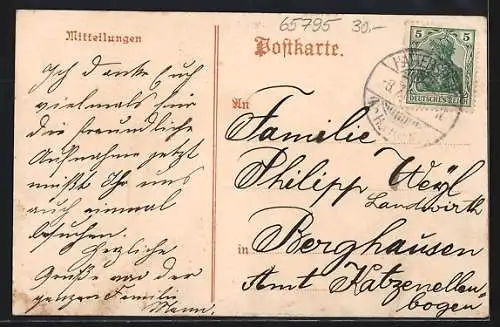 65795 30.-
Mitteilungen
Postkarte.
5 5
DEUTSCHES REICH
Ich danke Euch
vielmals für
die freundliche
Aufnahme jetzt
müßt Ihr uns
auch einmal
besuchen.
Herzliche
Grüße von der
ganzen Familie
An
Familie
Philipp Weyl
Landwirth
in Berghausen
Amt Katzenellen-
bogen